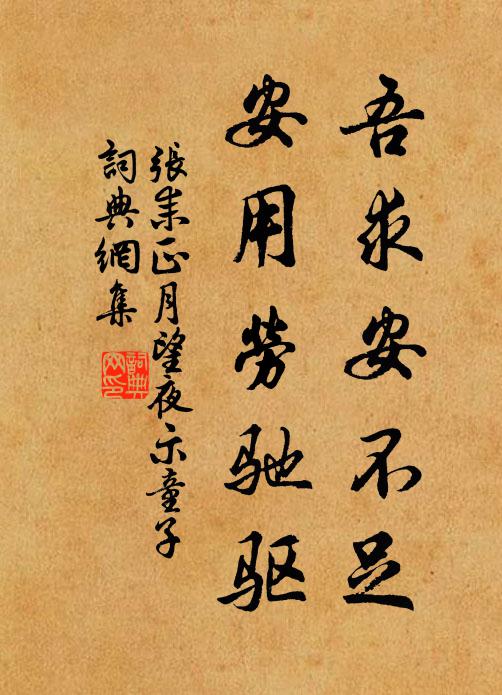 吾求安不足
安用劳驰驱
張耒正月望夜示童子
詞典網集
詞典网印